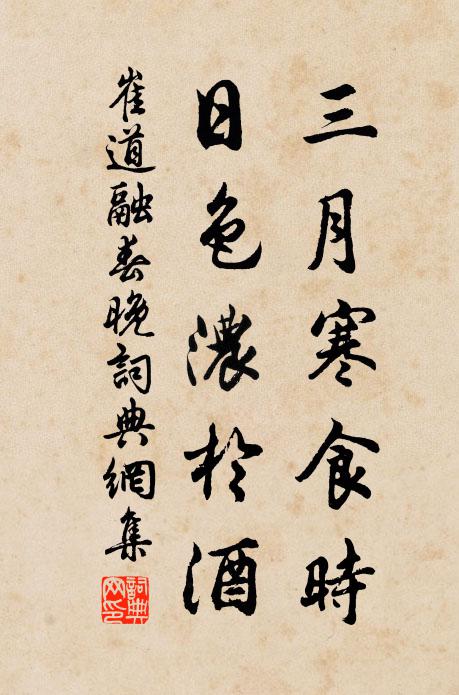 三月寒食時
日色濃於酒
崔道融春晚詞典網集
詞典網印